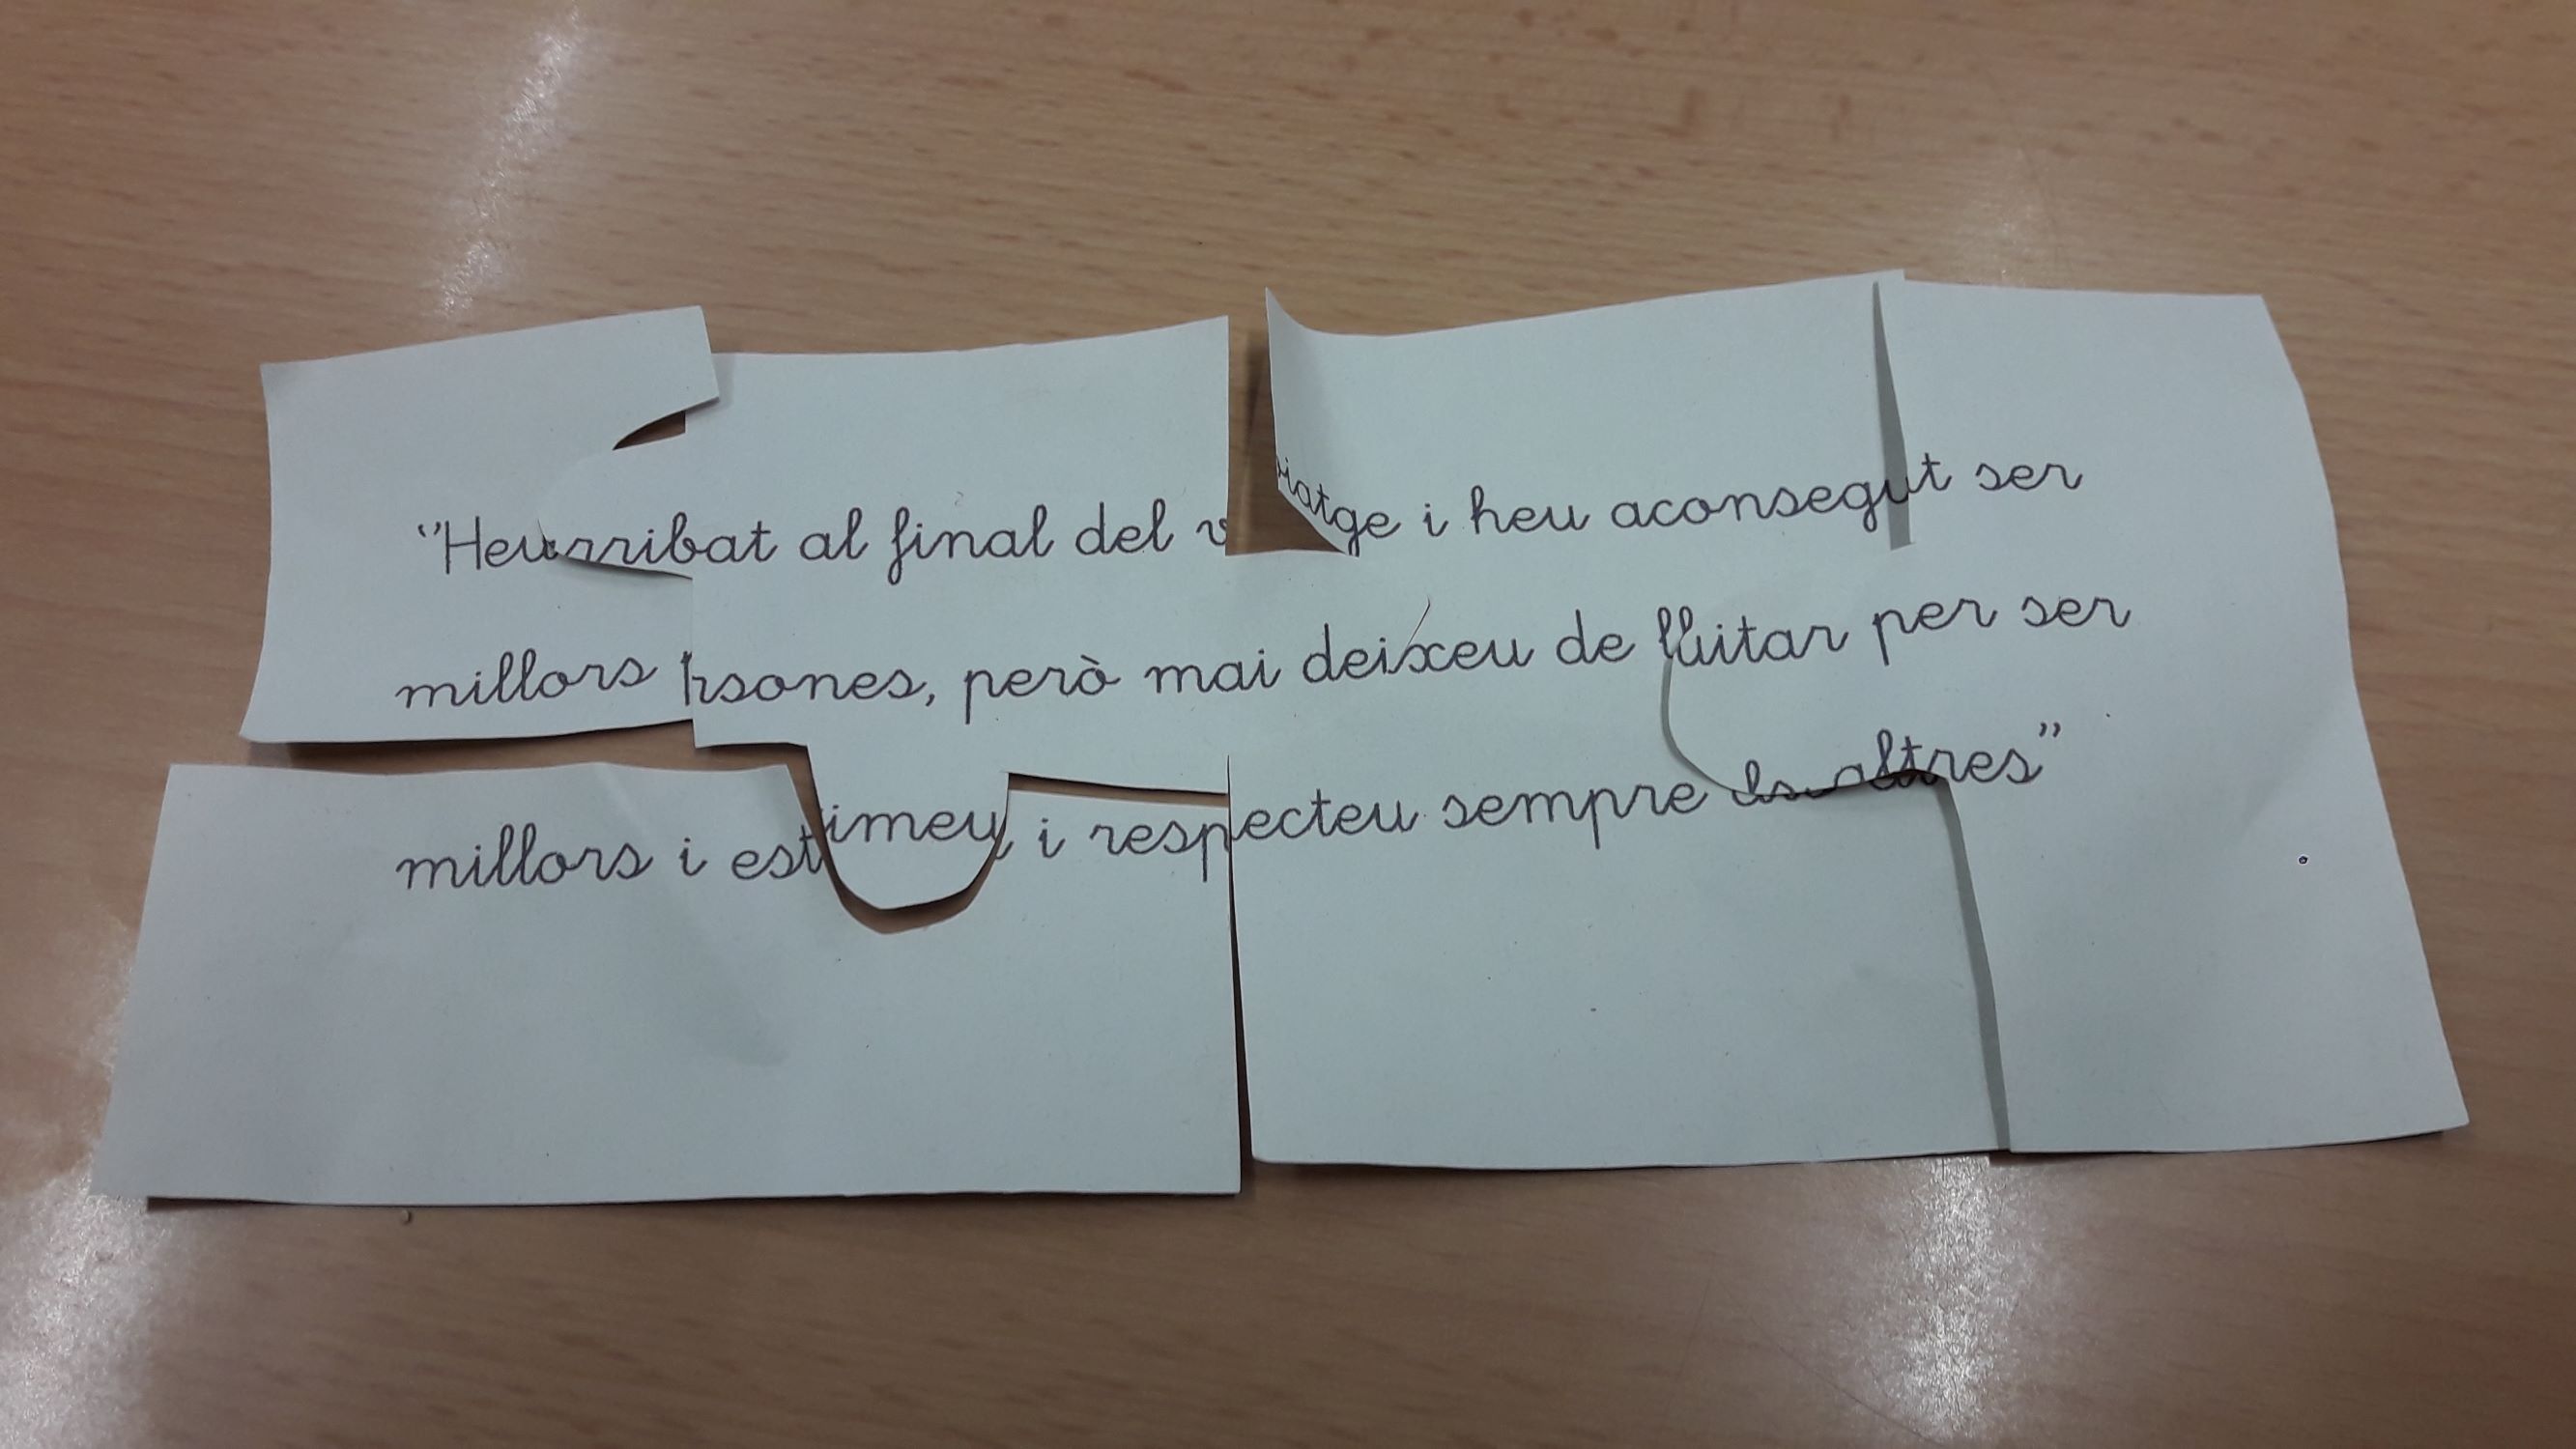 "Heu arribat al final del viatge i heu aconsegut ser
millors persones, però mai deixeu de lluitar per ser
millors i estimeu, i respecteu sempre els altres"